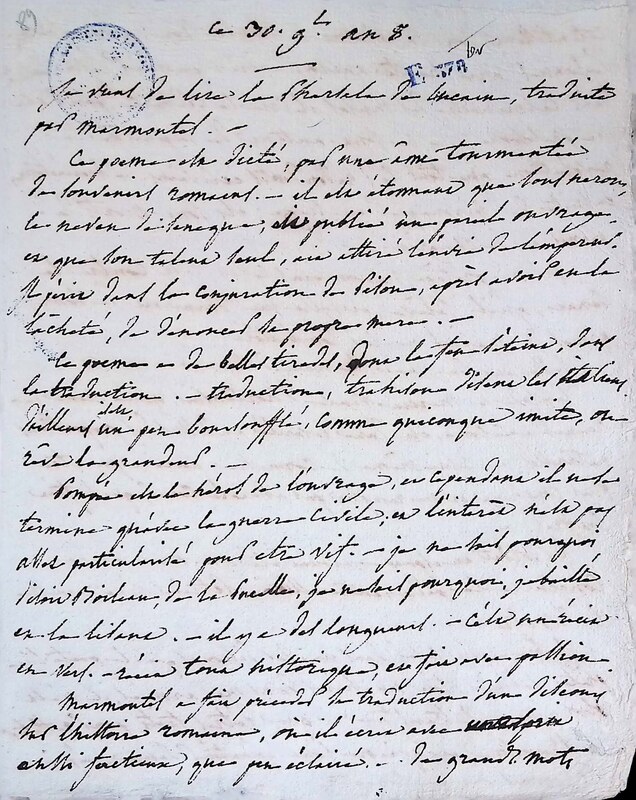 89
ce 30. g.bre an 8.
E 578
Je viens de lire la Pharsale de Lucain, traduite
par Marmontel. —
Ce poeme est dicté, par une âme tourmentée
de souvenirs romains. — il est étonnant que sous neron,
le neveu de seneque, ait publié un pareil ouvrage,
et que son talent seul, ait attiré l'envie de l'empereur.
Il périt dans la conjuration de Pison, après avoir eu la
lâcheté, de dénoncer sa propre mere. —
Ce poeme a de belles tirades, dont le feu s'éteint, dans
la traduction. — traduction, trahison disent les italiens
d'ailleurs un peu boursoufflé, comme quiconque imite, ou
rêve la grandeur. —
Pompée est le héros de l'ouvrage, et cependant il ne se
termine qu'avec la guerre civile, et l'intérêt n'est pas
assez particularisé pour etre vif. — je ne sais pourquoi
disoit Boileau, de la Pucelle, je ne sais pourquoi, je baille
en la lisant. — il y a des longueurs. — C'est un récit
en vers. — récit tout historique, et fait avec passion.
Marmontel a fait précéder sa traduction d'un discours
sur l'histoire romaine, où il écrit avec
aussi factieux, que peu éclairé. — de grands mots